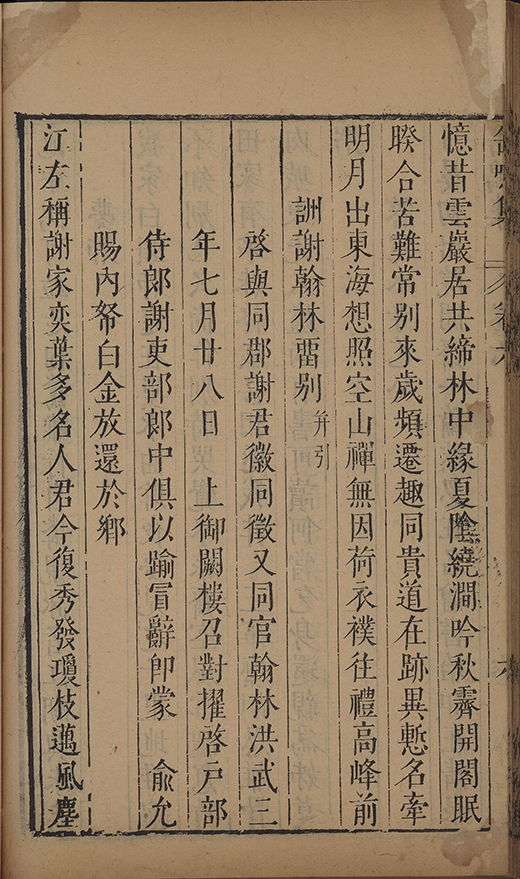 憶昔雲巖居共締林中緣夏陰繞澗吟秋霽開閣眠
暌合苦難常别來歲頻遷趣同貴道在跡異慙名牽
明月出東海想照空山禪無因荷衣襆往禮高峰前
詶謝翰林畱别并引
啓與同郡謝君徽同徵又同官翰林洪武三
年七月廿八日 上御闕樓召對擢啓戸部
侍郎謝吏部郎中俱以踰冒辭卽蒙 兪允
賜内帑白金放還於鄉
江左稱謝家奕葉多名人君今復秀發瓊枝邁風塵